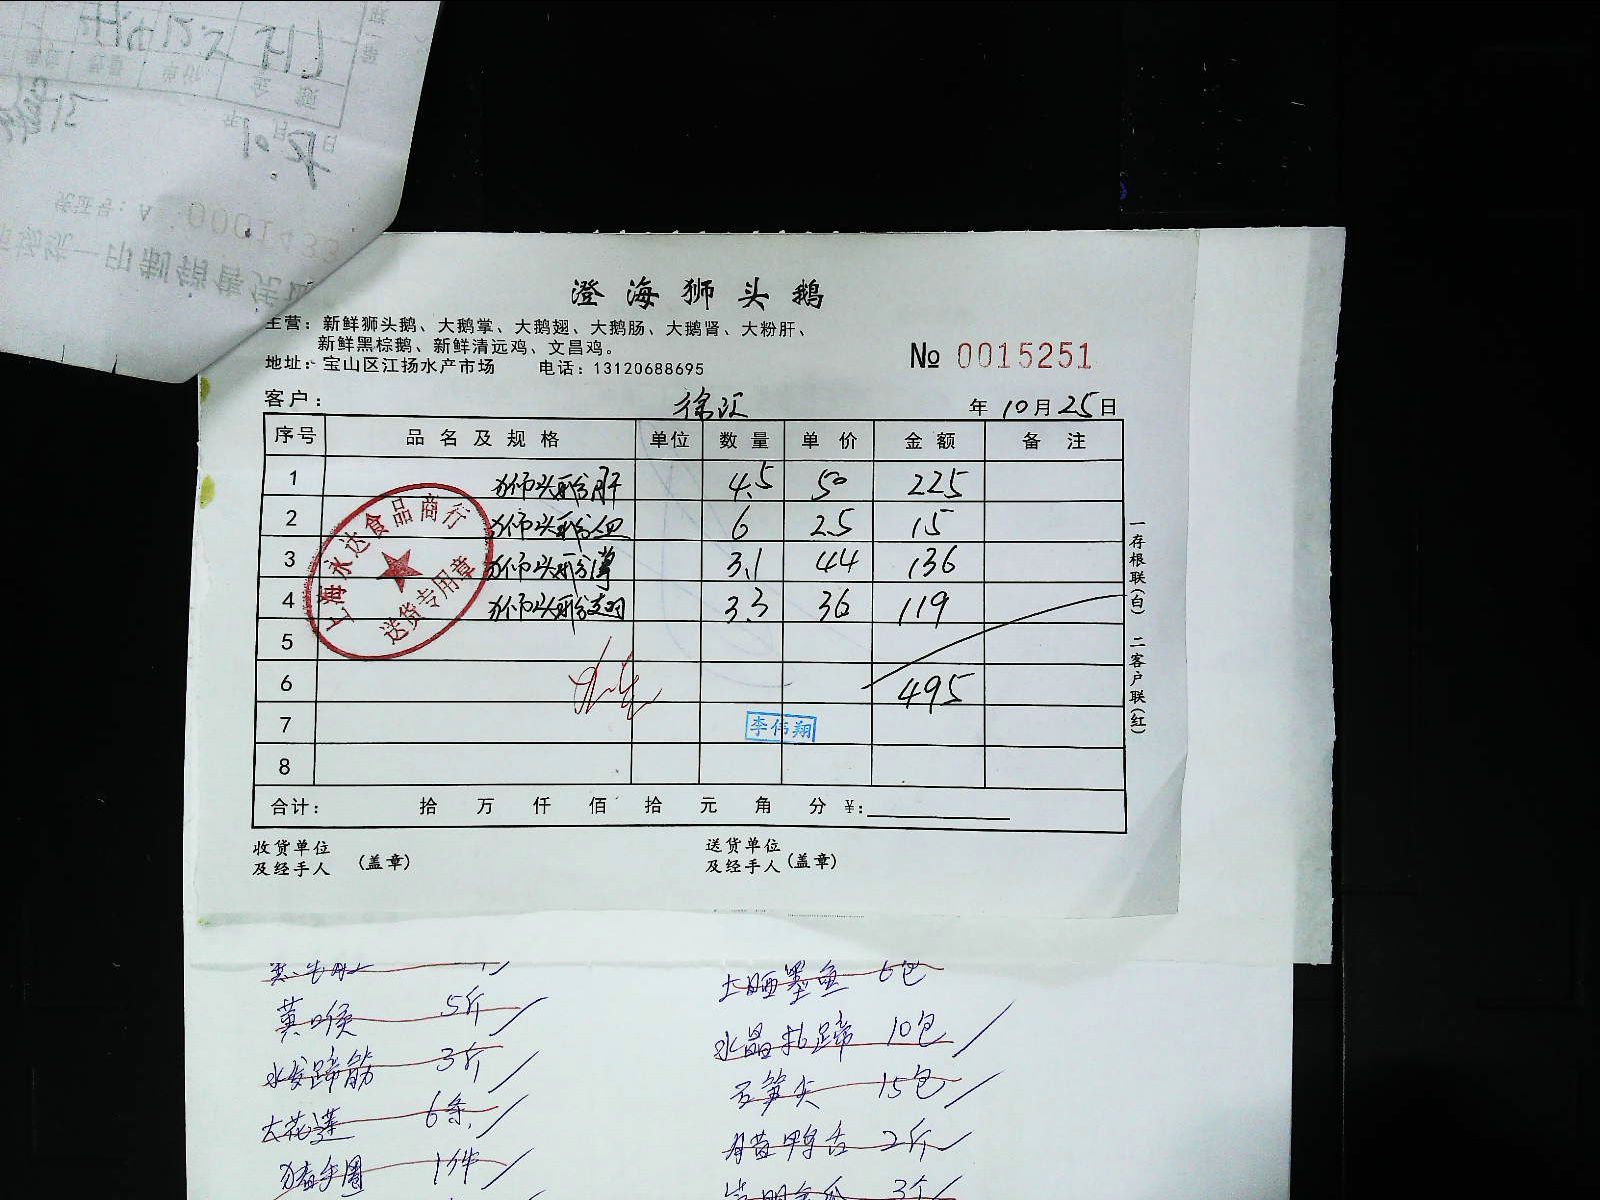 澄海狮头鹅
主营：新鲜狮头鹅、大鹅掌、大鹅翅、大鹅肠、大鹅肾、大粉肝、
新鲜黑棕鹅、新鲜清远鸡、文昌鸡。
地址：宝山区江扬水产市场 电话：13120688695
№ 0015251
客户： 徐汇 年 10月 25日
序号 品名及规格 单位 数量 单价 金额 备注
1 狮头鹅肝 4.5 50 225
2 狮头鹅血 6 2.5 15
3 狮头鹅掌 3.1 44 136
4 狮头鹅翅 3.3 36 119
5
6 495
7 李伟翔
8
合计： 拾 万 仟 佰 拾 元 角 分 ¥:
上海永达食品商行
送货专用章
一存根联(白) 二客户联(红)
收货单位
及经手人 (盖章)
送货单位
及经手人 (盖章)
黄喉 5斤
水发蹄筋 3斤
大花莲 6条
1件
土晒墨鱼 6包
水晶 蹄 10包
笋尖 15包
鸭舌 2斤
3个
0001433